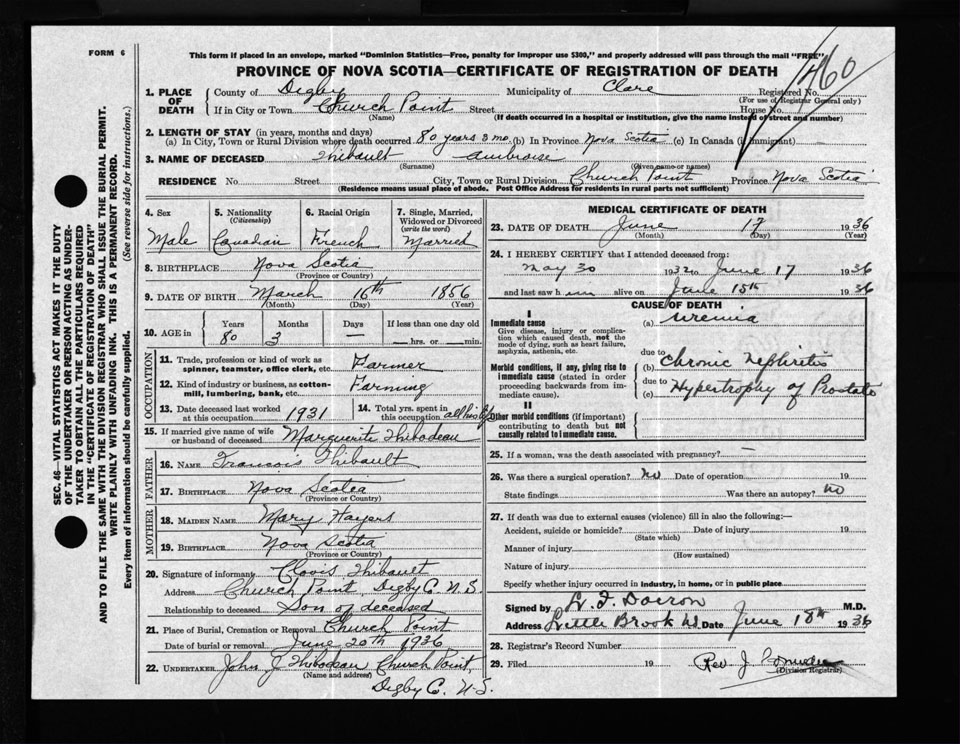 FORM 6
This form if placed in an envelope, marked "Dominion Statistics—Free, penalty for improper use $300," and properly addressed will pass through the mail "FREE"
PROVINCE OF NOVA SCOTIA—CERTIFICATE OF REGISTRATION OF DEATH
460
1. PLACE OF DEATH County of Digby Municipality of Clare Registered No.
(For use of Registrar General only)
If in City or Town Church Point Street House No.
(Name) (If death occurred in a hospital or institution, give the name instead of street and number)
2. LENGTH OF STAY (in years, months and days)
(a) In City, Town or Rural Division where death occurred 80 years 3 mo. (b) In Province Nova Scotia (c) In Canada (if immigrant) —
3. NAME OF DECEASED Thibault Ambroise
(Surname) (Given name or names)
RESIDENCE No. Street City, Town or Rural Division Church Point Province Nova Scotia
(Residence means usual place of abode. Post Office Address for residents in rural parts not sufficient)
SEC. 46—VITAL STATISTICS ACT MAKES IT THE DUTY
OF THE UNDERTAKER OR PERSON ACTING AS UNDER-
TAKER TO OBTAIN ALL THE PARTICULARS REQUIRED
IN THE "CERTIFICATE OF REGISTRATION OF DEATH"
AND TO FILE THE SAME WITH THE DIVISION REGISTRAR WHO SHALL ISSUE THE BURIAL PERMIT.
WRITE PLAINLY WITH UNFADING INK. THIS IS A PERMANENT RECORD.
Every item of information should be carefully supplied. (See reverse side for instructions.)
4. Sex 5. Nationality (Citizenship) 6. Racial Origin 7. Single, Married, Widowed or Divorced (write the word)
Male Canadian French Married
8. BIRTHPLACE Nova Scotia
(Province or Country)
9. DATE OF BIRTH March 16th 1856
(Month) (Day) (Year)
10. AGE in Years Months Days If less than one day old
80 3 — — hrs. or — min.
OCCUPATION
11. Trade, profession or kind of work as spinner, teamster, office clerk, etc. Farmer
12. Kind of industry or business, as cotton-mill, lumbering, bank, etc. Farming
13. Date deceased last worked at this occupation 1931 14. Total yrs. spent in this occupation all his life
15. If married give name of wife or husband of deceased Marguerite Thibodeau
FATHER
16. NAME Francois Thibault
17. BIRTHPLACE Nova Scotia
(Province or Country)
MOTHER
18. MAIDEN NAME Mary Hayes
19. BIRTHPLACE Nova Scotia
(Province or Country)
20. Signature of informant Clovis Thibault
Address Church Point Digby C. N.S.
Relationship to deceased Son of deceased
21. Place of Burial, Cremation or Removal Church Point
Date of burial or removal June 20th 1936
22. UNDERTAKER John J Thibodeau Church Point,
(Name and address)
Digby C. N.S.
MEDICAL CERTIFICATE OF DEATH
23. DATE OF DEATH June 17 1936
(Month) (Day) (Year)
24. I HEREBY CERTIFY that I attended deceased from:
May 30 1932 to June 17 1936
and last saw him alive on June 15th 1936
CAUSE OF DEATH
I
Immediate cause
Give disease, injury or complication which caused death, not the mode of dying, such as heart failure, asphyxia, asthenia, etc.
(a) Uremia
due to
Morbid conditions, if any, giving rise to immediate cause (stated in order proceeding backwards from immediate cause).
(b) Chronic Nephritis
due to
(c) Hypertrophy of Prostate
II
Other morbid conditions (if important) contributing to death but not causally related to immediate cause.
25. If a woman, was the death associated with pregnancy? —
26. Was there a surgical operation? No Date of operation 19
State findings Was there an autopsy? No
27. If death was due to external causes (violence) fill in also the following:—
Accident, suicide or homicide? Date of injury 19
(State which)
Manner of injury
(How sustained)
Nature of injury
Specify whether injury occurred in industry, in home, or in public place
Signed by L. F. Doiron M.D.
Address Little Brook Date June 18th 1936
28. Registrar's Record Number
29. Filed 19 Rev J
(Division Registrar)